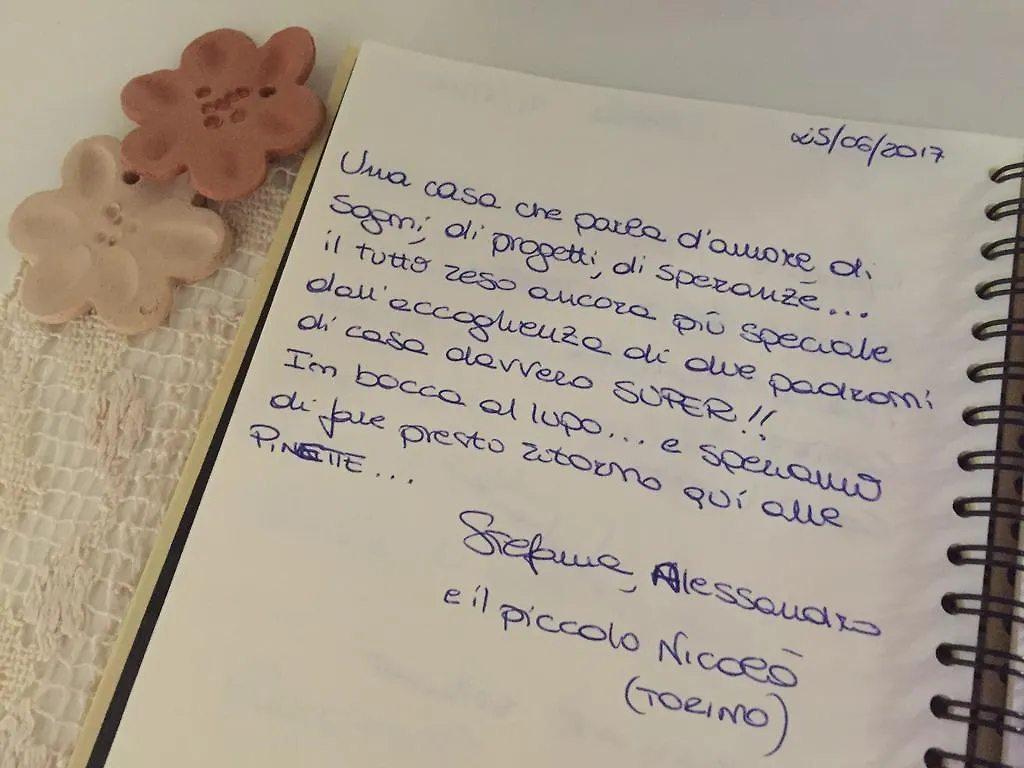 25/06/2017
Una casa che parla d'amore di
sogni, di progetti, di speranze...
il tutto reso ancora più speciale
dall'accoglienza di due padroni
di casa davvero SUPER!!
In bocca al lupo... e speriamo
di fare presto ritorno qui alle
PINETTE...
Stefania, Alessandro
e il piccolo Niccolò
(TORINO)